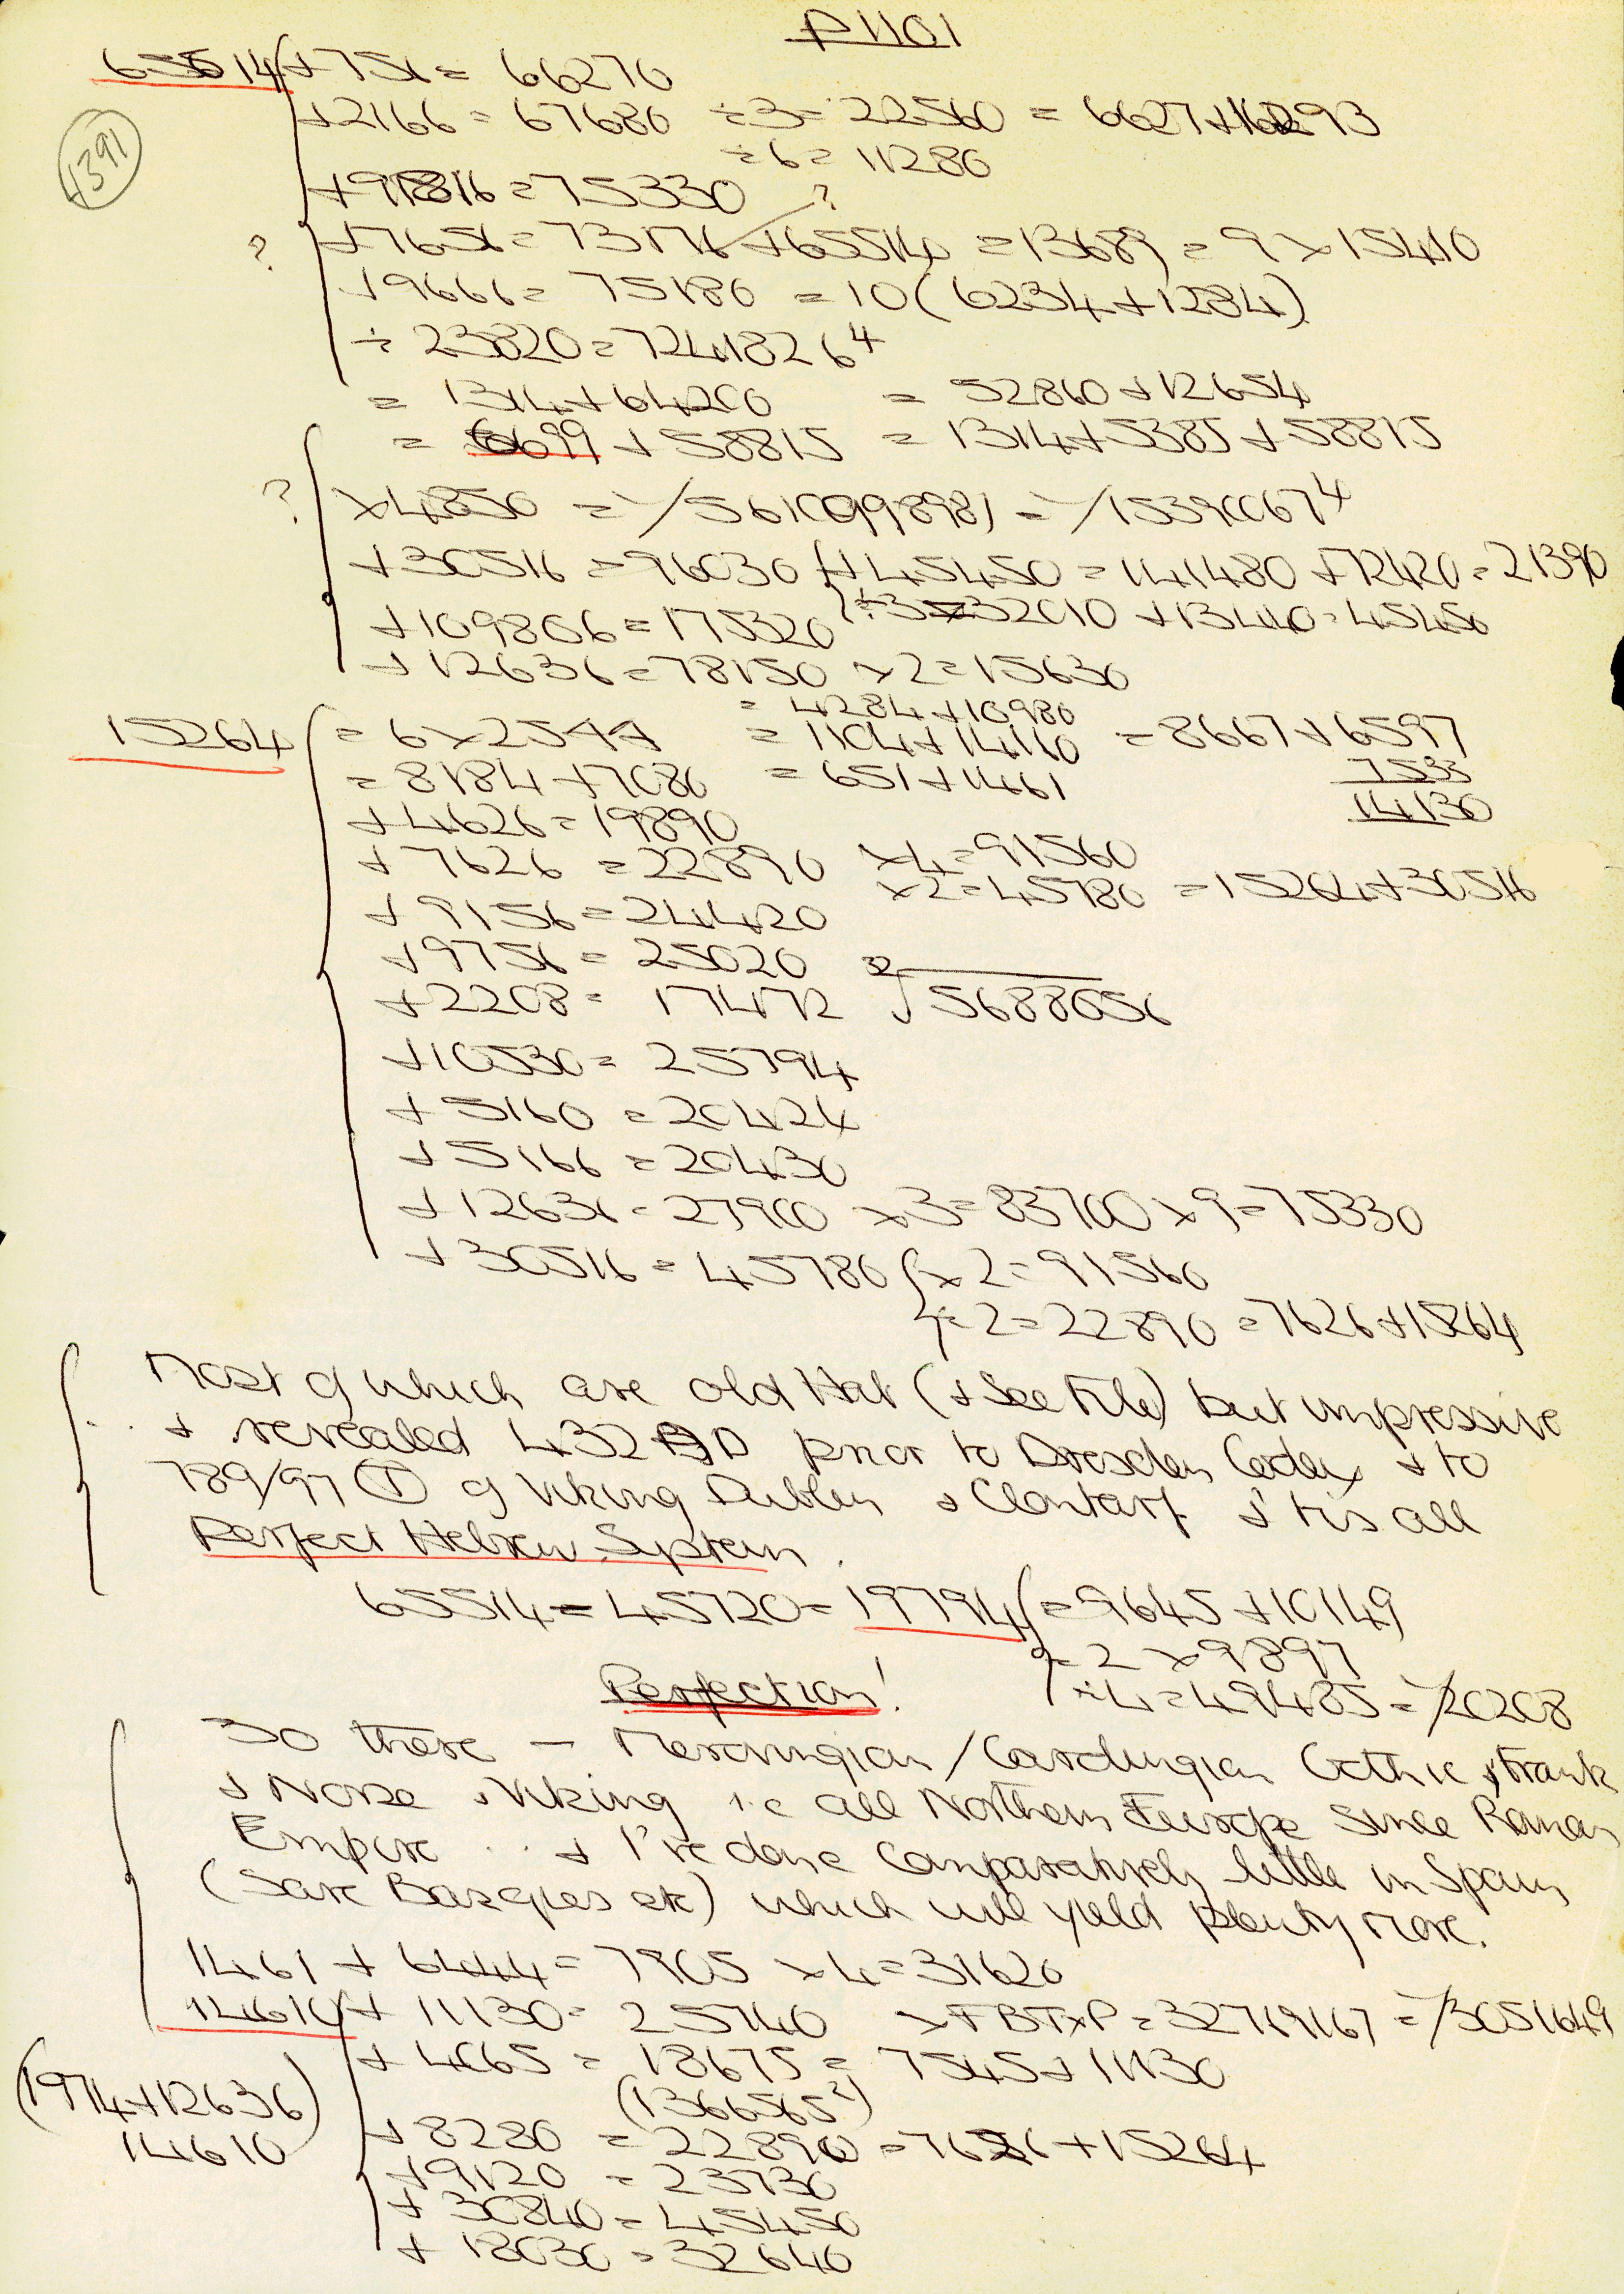 P1101
65514 + 756 = 66270
1391
+ 2166 = 67680 ÷ 3 = 22560 = 6627 +
÷ 6 = 11280
+ 9816 = 75330
? + 7656 = 73176 + 65514 = 13689 = 9 × 15410
?
+ 9666 = 75180 = 10 (6234 + 1284)
÷ 23820 = 7241826⁴
= 1314 + 64200 = 52860 + 12654
= 6699 + 58815 = 1314 + 5385 + 58815
? × 4850 =
+ 30516 = 96030 + 45450 = 141480 + 72420 = 21390
÷ 3 = 32010 + 13440 = 45450
+ 109806 = 175320
+ 12636 = 78150 × 2 = 15630
= 4284 + 10980
15264 = 6 × 2544 = 1104 + 14160 = 8667 + 6597
7533
= 8184 + 7080 = 651 + 1461
14130
+ 4626 = 19890
+ 7626 = 22890 × 4 = 91560
× 2 = 45780 = 15264 + 30516
+ 9156 = 24420
+ 9756 = 25020
+ 2208 = 17472 ³²√5688056
+ 10530 = 25794
+ 5160 = 20424
+ 5166 = 20430
+ 12636 = 27900 × 3 = 83700 × 9 = 75330
+ 30516 = 45780 × 2 = 91560
÷ 2 = 22890 = 7626 + 15264
Most of which are old Hat (+ See File) but impressive
+ revealed 432 AD prior to Dresden Codex + to
789/97 (T) of Viking Dublin + Clontarf + tis all
Perfect Hebrew System.
65514 - 45720 = 19794 = 9645 + 10149
= 2 × 9897
÷ 4 = 49485 = 1/20208
Perfection!
So there — Merovingian / Carolingian Gothic + Frank
+ Norse + Viking i.e all Northern Europe since Roman
Empire ... + I've done Comparatively little in Spain
(Save Basques etc) which will yield plenty more.
1461 + 6444 = 7905 × 4 = 31620
14610 + 11130 = 25740 × FBTxP = 32719167 = 1/3051649
+ 4065 = 18675 = 7545 + 11130
(1366565²)
(1974 + 12636)
14610
+ 8280 = 22890 = 7626 + 15264
+ 9120 = 23730
+ 30840 = 45450
+ 18030 = 32640